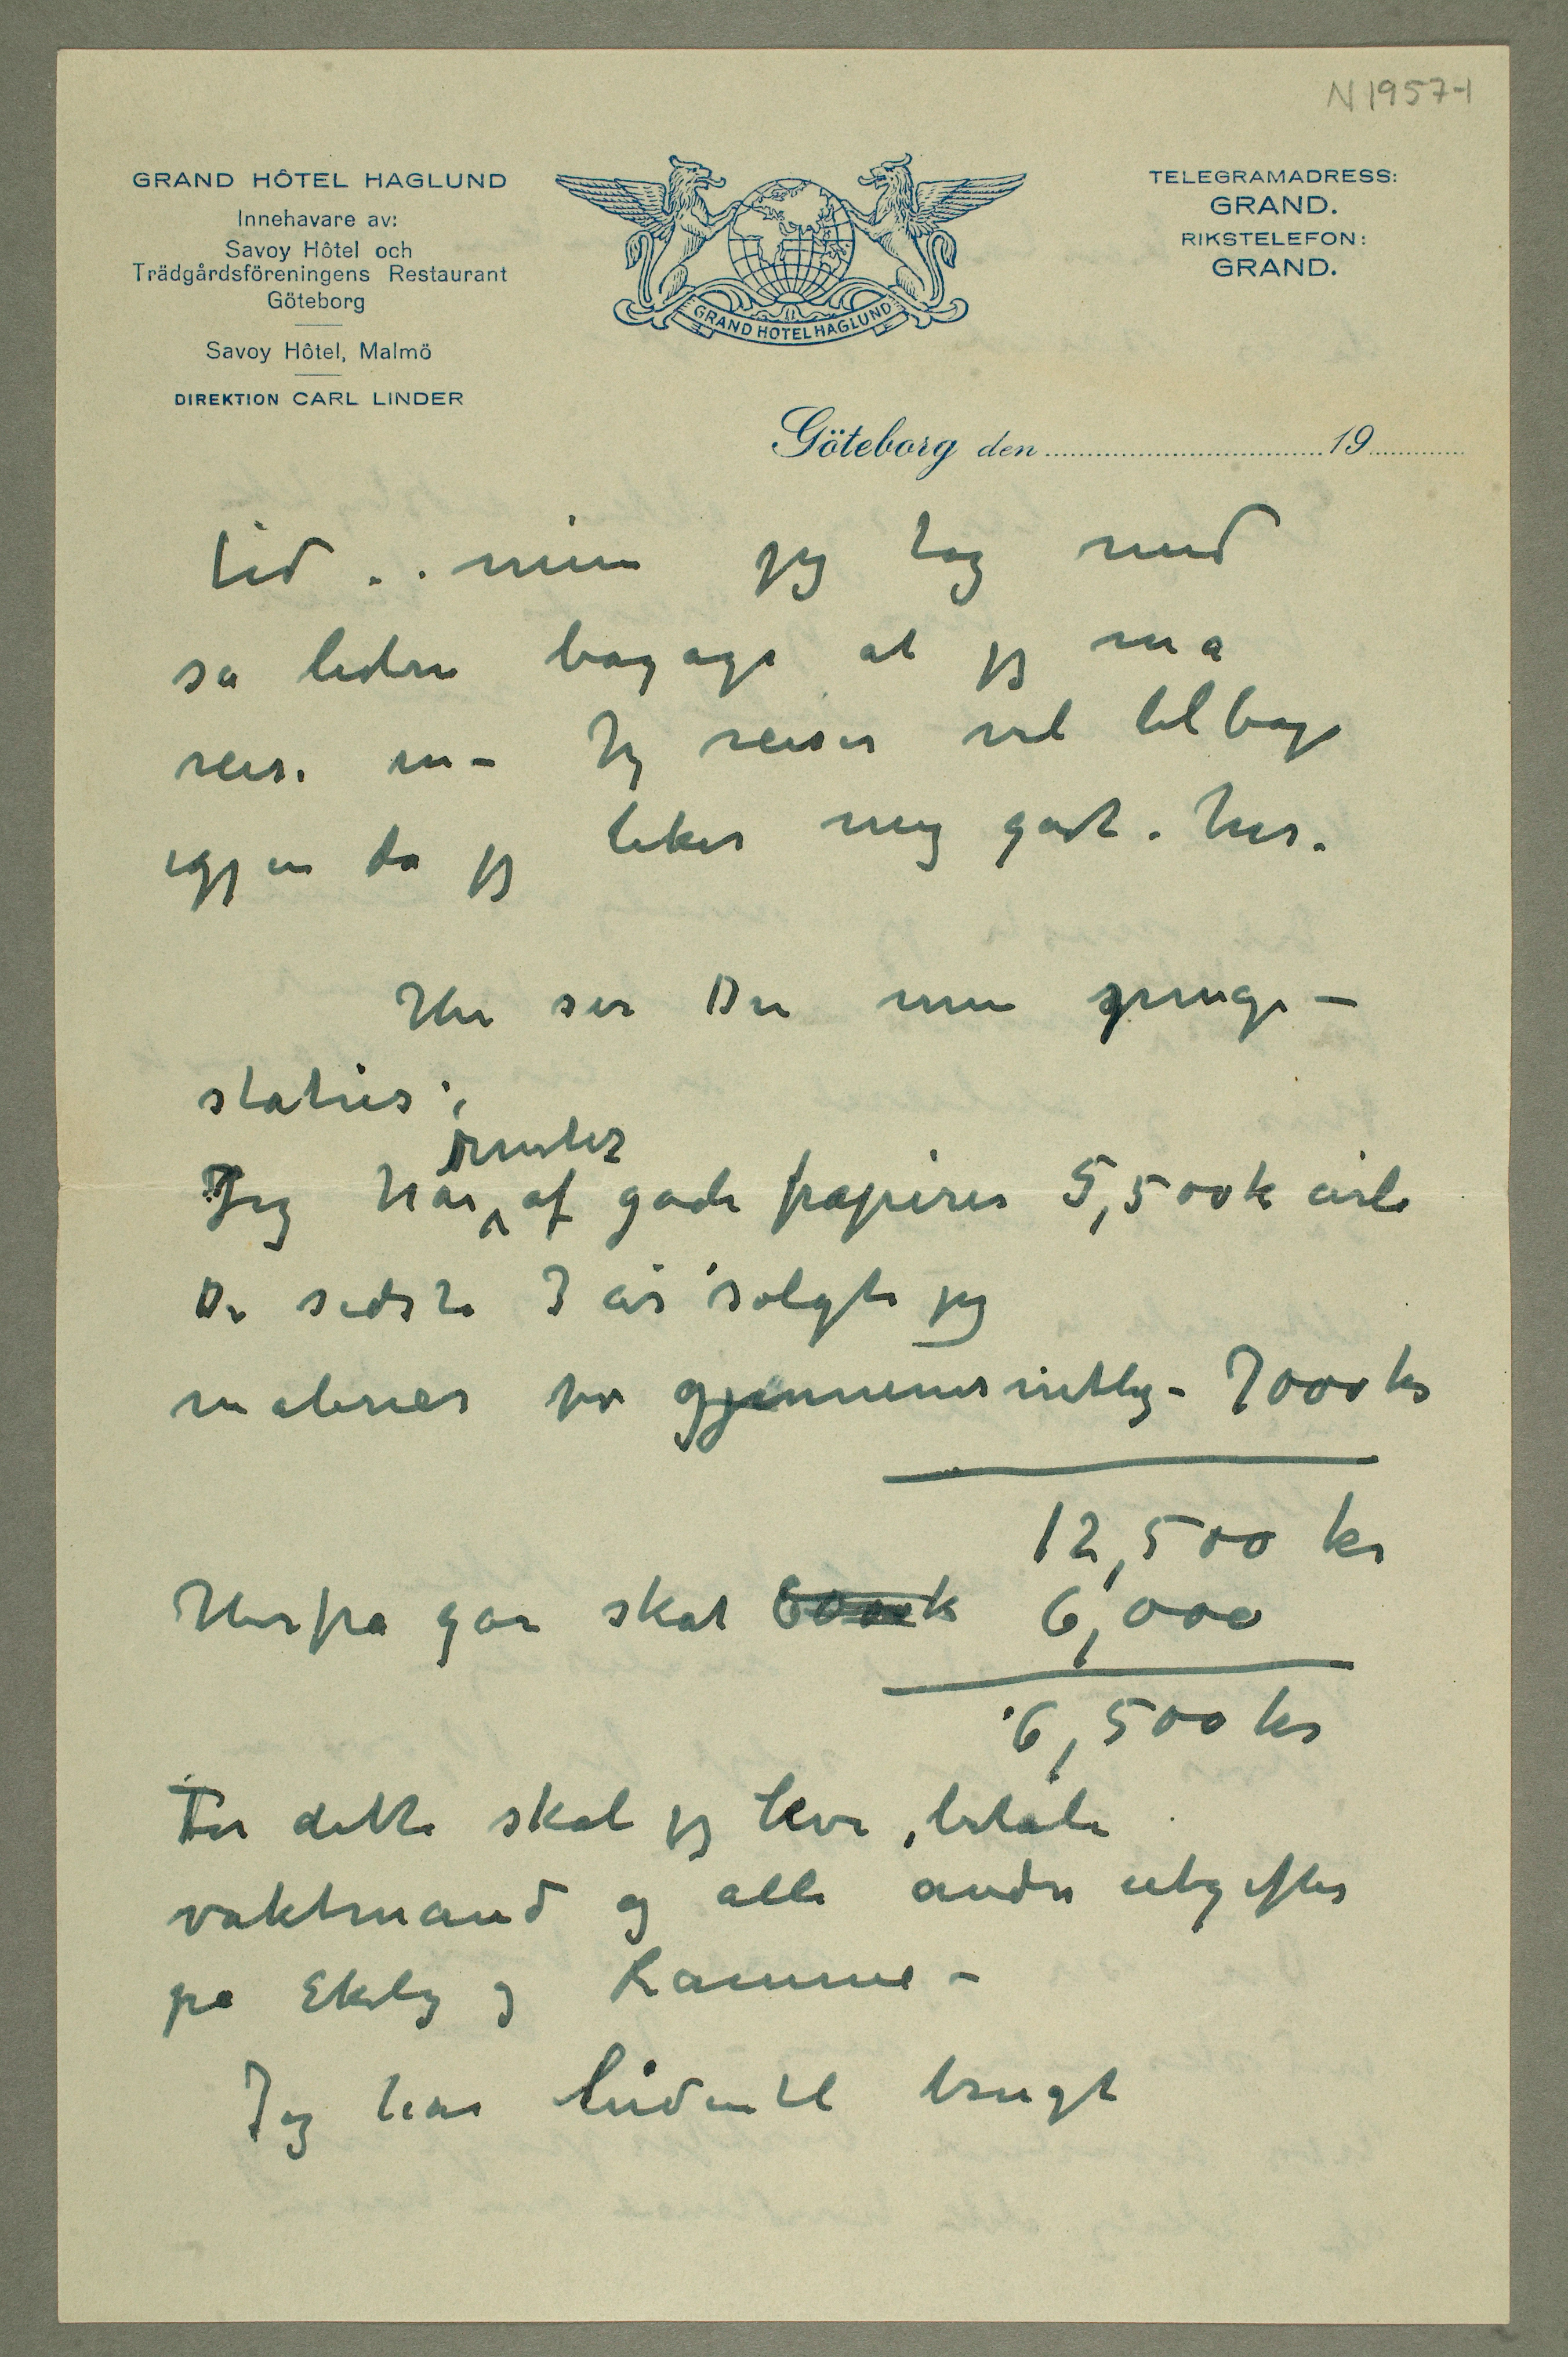 N 1957-1
GRAND HÔTEL HAGLUND
Innehavare av:
Savoy Hôtel och
Trädgårdsföreningens Restaurant
Göteborg
Savoy Hôtel, Malmö
DIREKTION CARL LINDER
GRAND HOTEL HAGLUND
TELEGRAMADRESS:
GRAND.
RIKSTELEFON:
GRAND.
Göteborg den 19
tid . . men jeg tog med
så liden bagage at jeg må
reise – Jeg reiser vel tilbage
igjen da jeg liker mig godt. her.
Her ser Du min penge-
status:
renter
Jeg har af gode papirer 5,500k årli
De sidste 3 år solgte jeg
malerier for gjennemsnitlig – 7000 kr
12,500 kr
Herfra går skat 6000k 6,000
6,500 kr
For dette skal jeg leve, betale
vaktmand og alle andre utgifter
på Ekely og Ramme –
Jeg har hidentil brugt